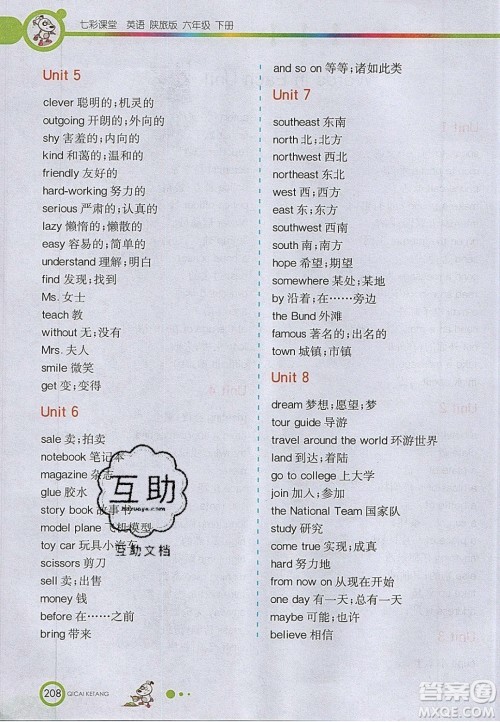 七彩课堂 英语 陕旅版 六年级 下册
Unit 5
clever 聪明的;机灵的
outgoing 开朗的;外向的
shy 害羞的;内向的
kind 和蔼的;温和的
friendly 友好的
hard-working 努力的
serious 严肃的;认真的
lazy 懒惰的;懒散的
easy 容易的;简单的
understand 理解;明白
find 发现;找到
Ms. 女士
teach 教
without 无;没有
Mrs. 夫人
smile 微笑
get 变;变得
Unit 6
sale 卖;拍卖
notebook 笔记本
magazine 杂志
glue 胶水
story book 故事书
model plane 飞机模型
toy car 玩具小汽车
scissors 剪刀
sell 卖;出售
money 钱
before 在……之前
bring 带来
and so on 等等;诸如此类
Unit 7
southeast 东南
north 北;北方
northwest 西北
northeast 东北
west 西;西方
east 东;东方
southwest 西南
south 南;南方
hope 希望;期望
somewhere 某处;某地
by 沿着;在……旁边
the Bund 外滩
famous 著名的;出名的
town 城镇;市镇
Unit 8
dream 梦想;愿望;梦
tour guide 导游
travel around the world 环游世界
land 到达;着陆
go to college 上大学
join 加入;参加
the National Team 国家队
study 研究
come true 实现;成真
hard 努力地
from now on 从现在开始
one day 有一天;总有一天
maybe 可能;也许
believe 相信
互助
互助文档
208 QICAI KETANG
答案圈
MXQE.COM